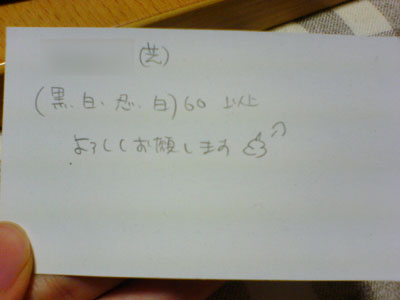 (芝)
(黒、白、忍、白) 60 以上
よろしくお願いします